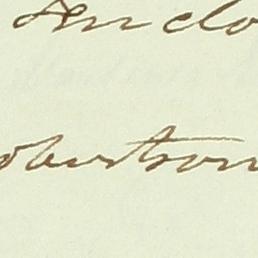 Anclo
obertson